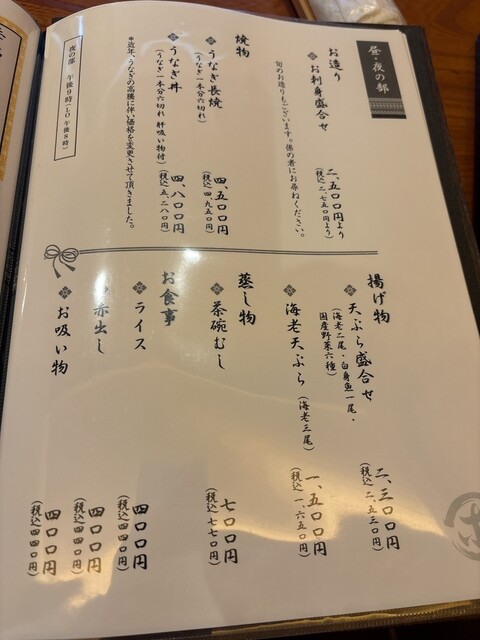 昼・夜の部
お造り
お刺身盛合せ
二、五〇〇円より
(税込 二、七五〇円より)
旬のお造りもございます。係の者にお尋ねください。
焼物
うなぎ長焼
(うなぎ一本分六切れ)
四、五〇〇円
(税込 四、九五〇円)
うなぎ丼
(うなぎ一本分六切れ 肝吸い物付)
四、八〇〇円
(税込 五、二八〇円)
*近年、うなぎの高騰に伴い価格を変更させて頂きました。
夜の部 午後9時(LO 午後8時)
揚げ物
天ぷら盛合せ
(海老二尾・白身魚一尾・
国産野菜六種)
二、三〇〇円
(税込 二、五三〇円)
海老天ぷら
(海老三尾)
一、五〇〇円
(税込 一、六五〇円)
蒸し物
茶碗むし
七〇〇円
(税込 七七〇円)
お食事
ライス
四〇〇円
(税込 四四〇円)
赤出し
四〇〇円
(税込 四四〇円)
お吸い物
四〇〇円
(税込 四四〇円)